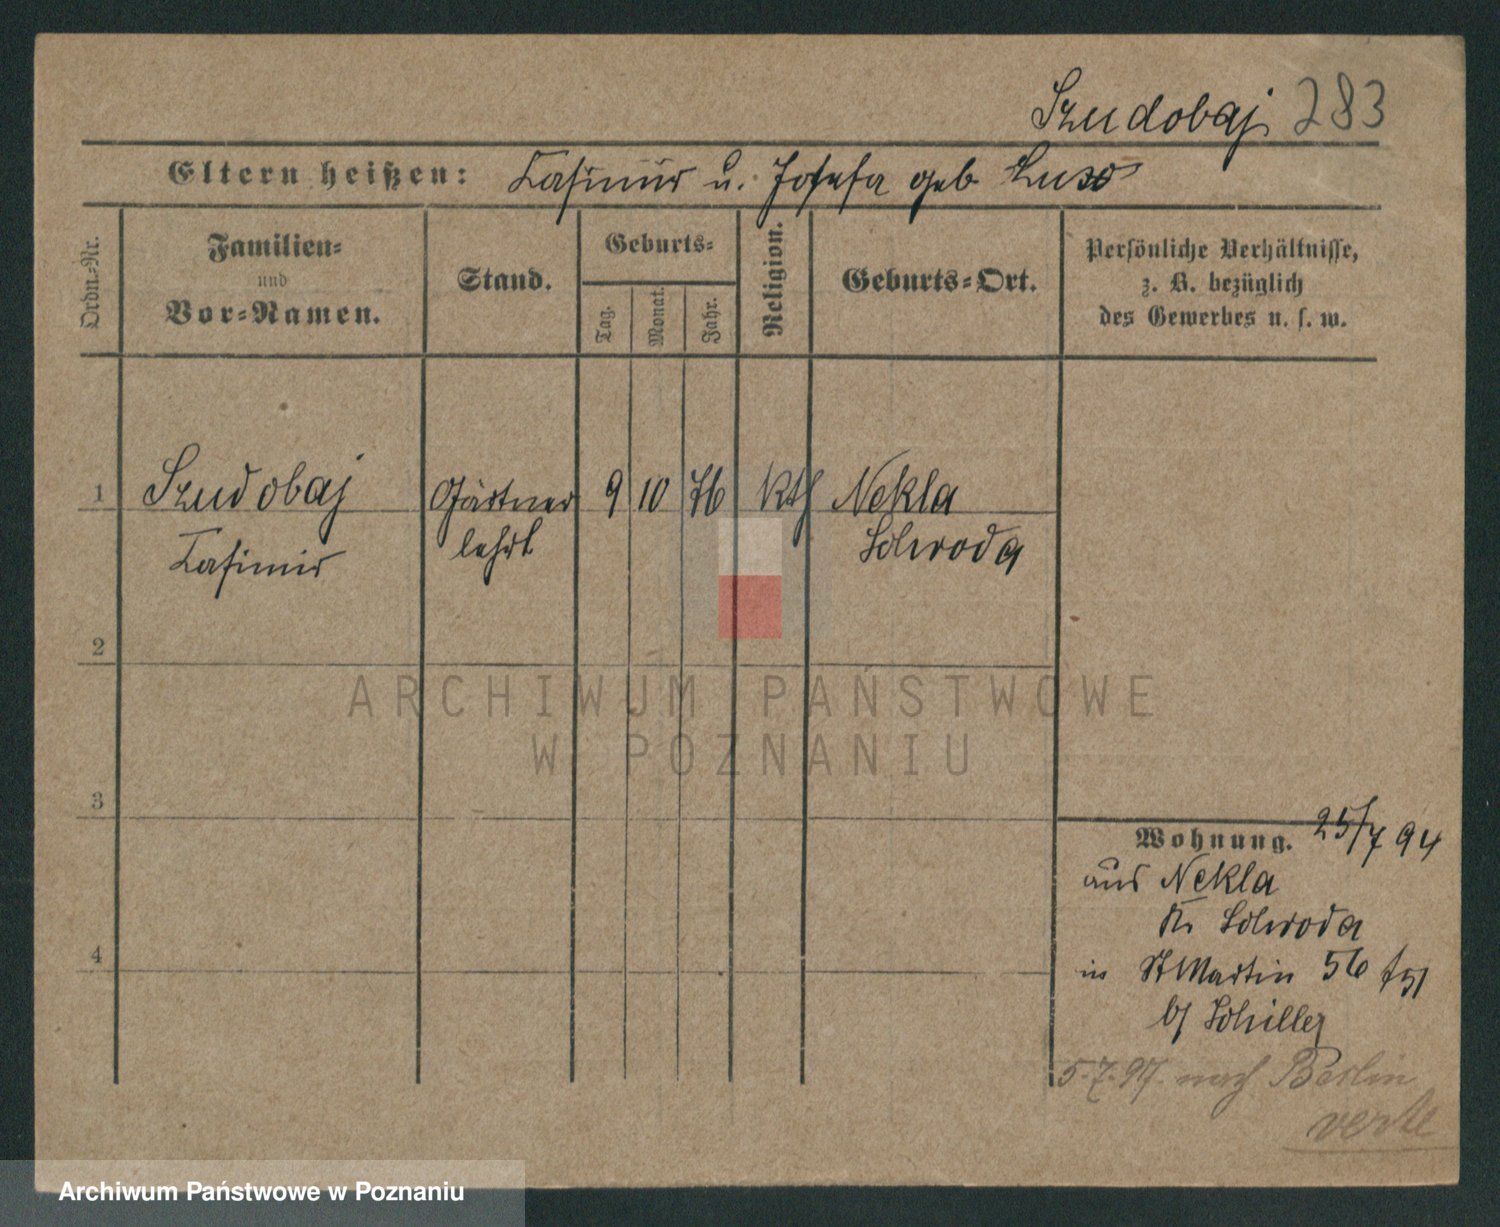 Szudobaj 283
Eltern heißen: Casimir u. Josefa geb
Ordn.-Nr.
Familien-
und
Vor-Namen.
Stand.
Geburts-
Tag.
Monat.
Jahr.
Religion.
Geburts-Ort.
Persönliche Verhältnisse,
z. B. bezüglich
des Gewerbes u. s. w.
1 Szudobaj Gärtner 9 10 76 kth Nekla
Casimir lehrl Schroda
2
ARCHIWUM PAŃSTWOWE
W POZNANIU
3
Wohnung. 25/7 94
aus Nekla
Kr Schroda
4
in St Martin 56
b/ Schiller
5.7.97. nach Berlin
verte
Archiwum Państwowe w Poznaniu